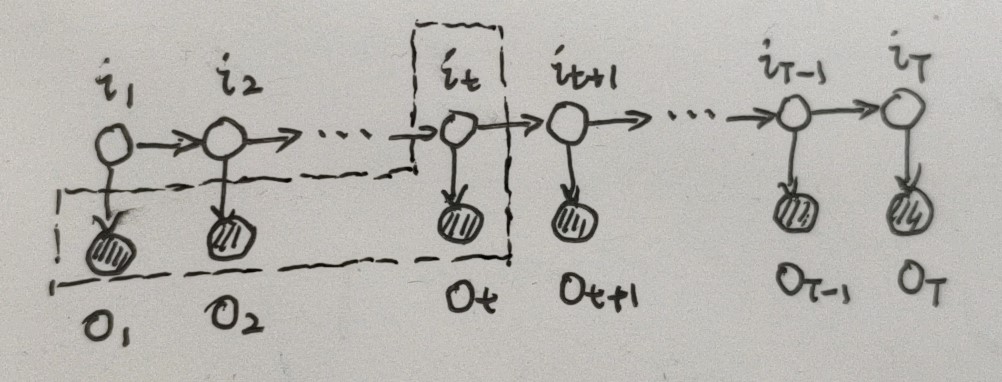 i₁ i₂ iₜ iₜ₊₁ i_T₋₁ i_T
··· ···
o₁ o₂ oₜ oₜ₊₁ o_T₋₁ o_T